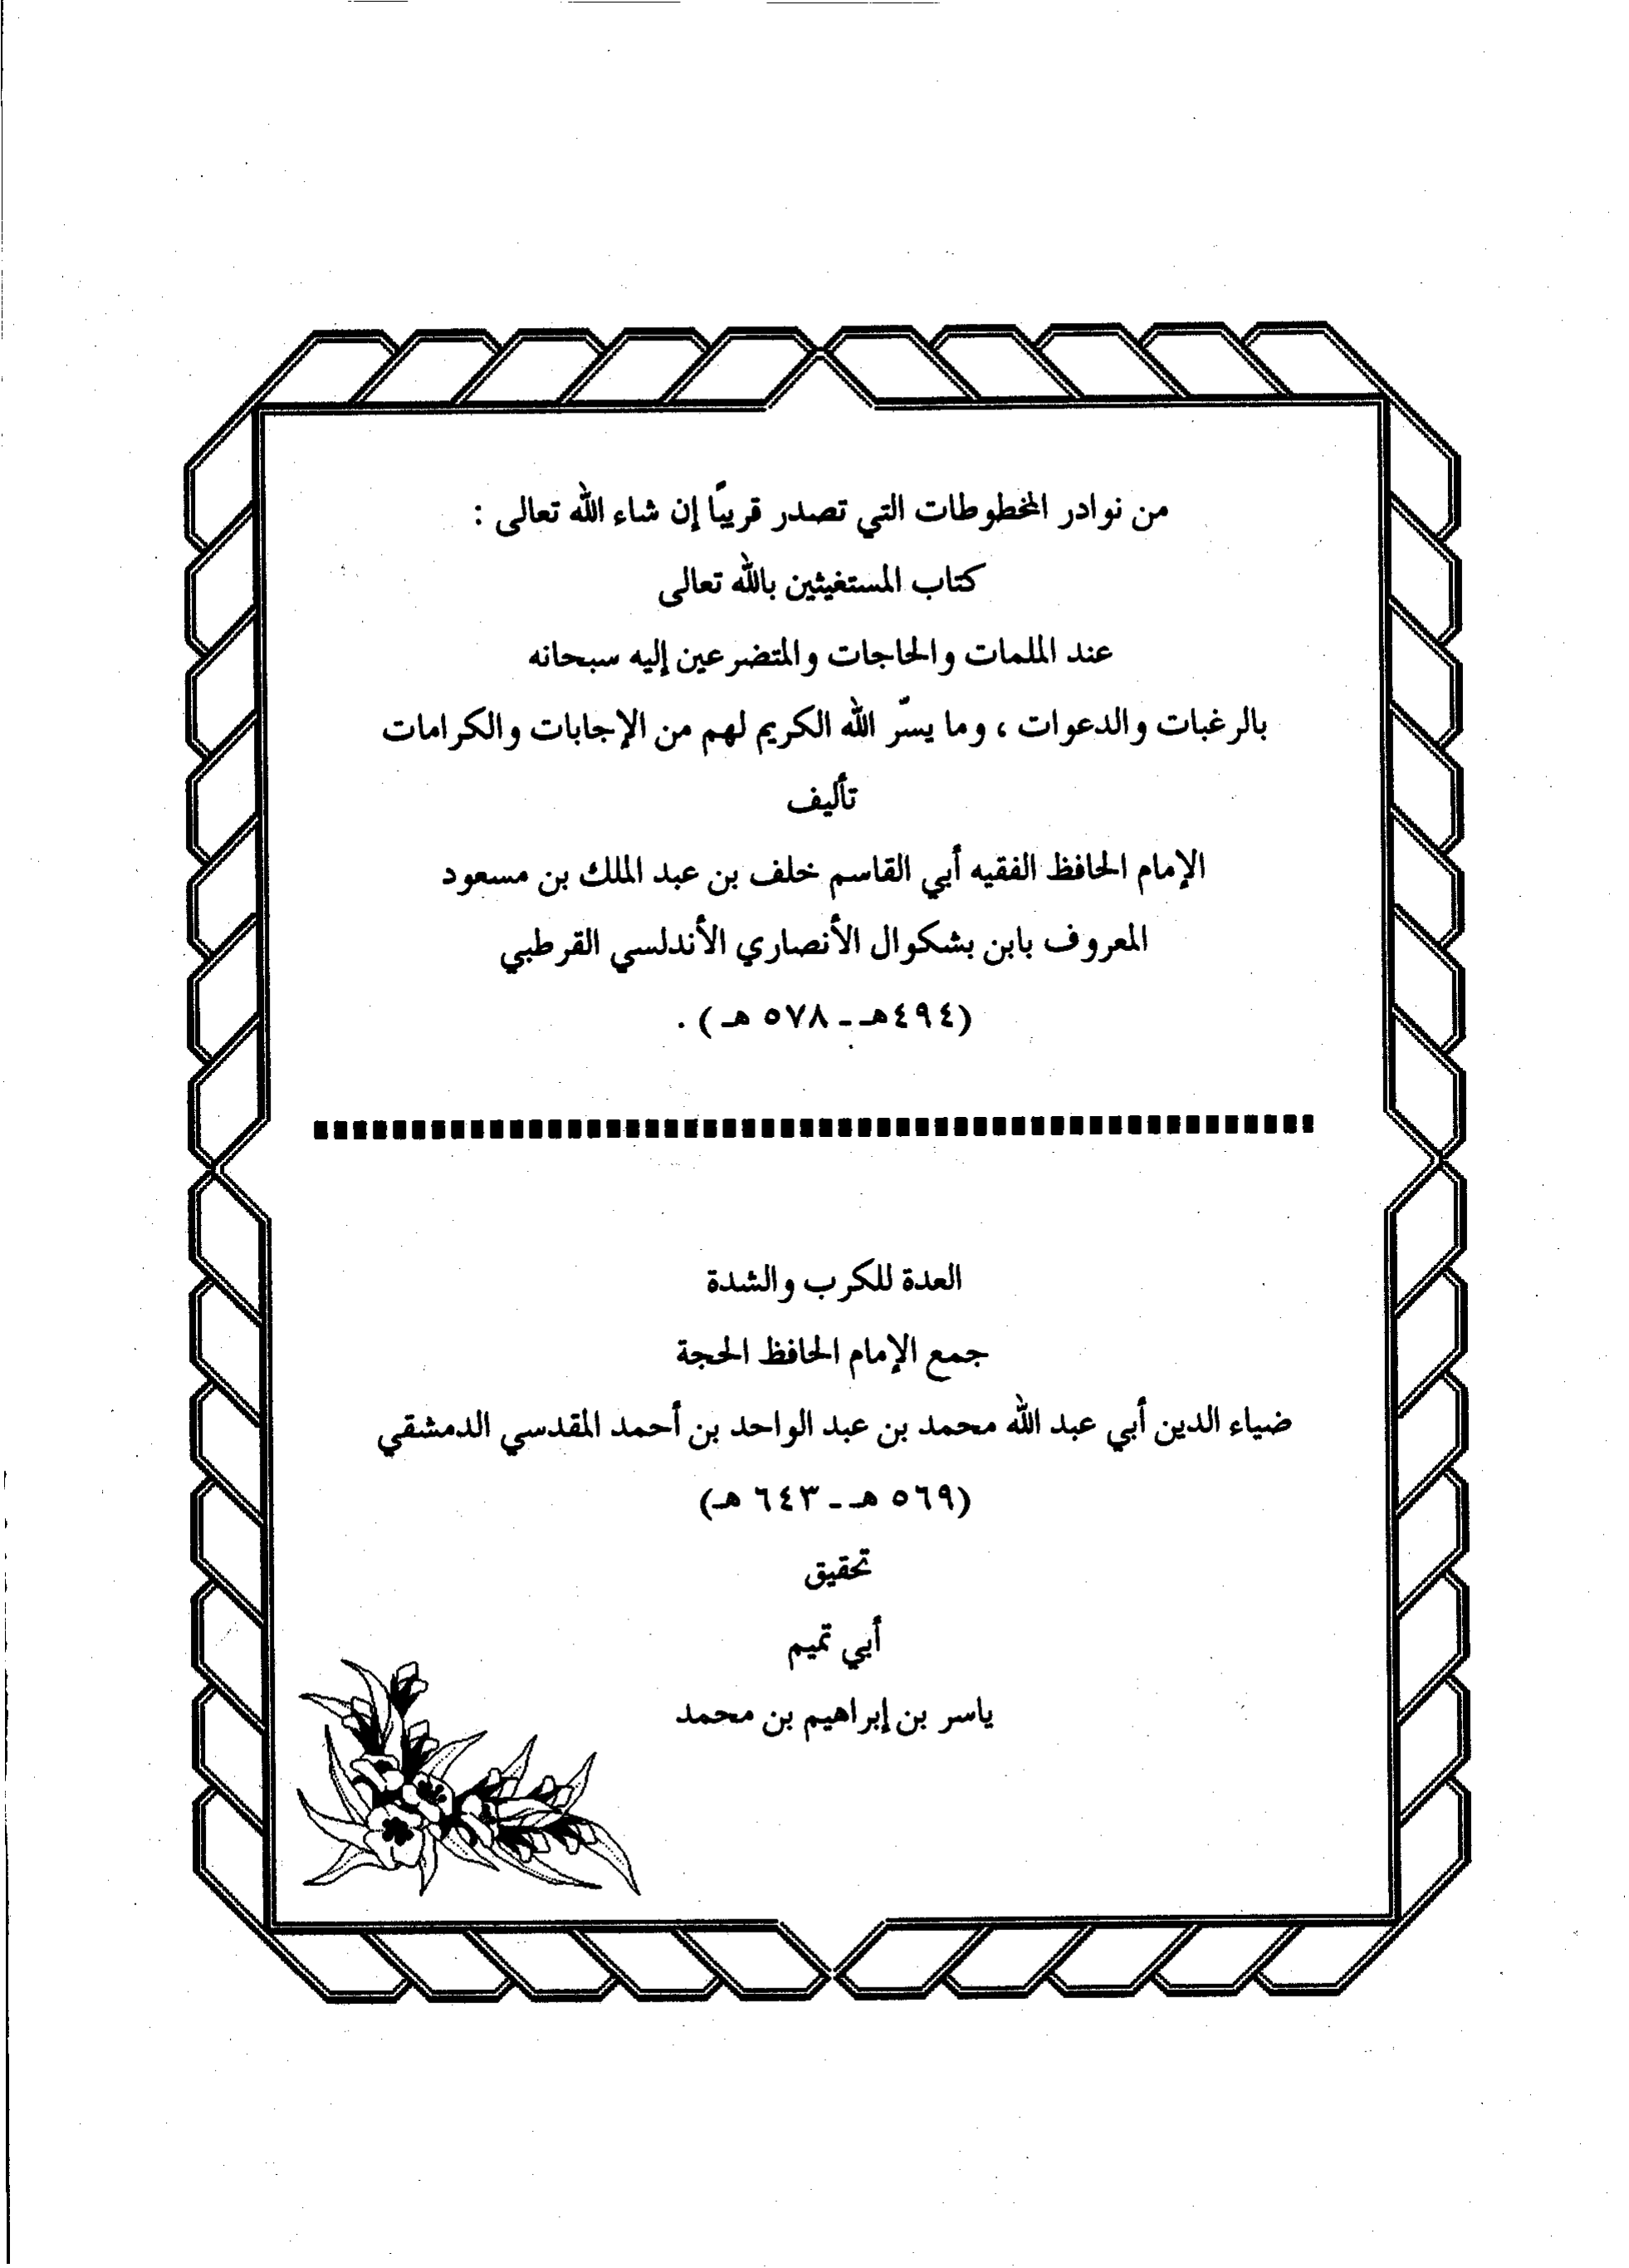 من نوادر المخطوطات التي تصدر قريبًا إن شاء الله تعالى :
كتاب المستغيثين بالله تعالى
عند الملمات والحاجات والمتضرعين إليه سبحانه
بالرغبات والدعوات ، وما يسّر الله الكريم لهم من الإجابات والكرامات
تأليف
الإمام الحافظ الفقيه أبي القاسم خلف بن عبد الملك بن مسعود
المعروف بابن بشكوال الأنصاري الأندلسي القرطبي
(٤٩٤هـ - ٥٧٨ هـ) .
العدة للكرب والشدة
جمع الإمام الحافظ الحجة
ضياء الدين أبي عبد الله محمد بن عبد الواحد بن أحمد المقدسي الدمشقي
(٥٦٩ هـ - ٦٤٣ هـ)
تحقيق
أبي تميم
ياسر بن إبراهيم بن محمد